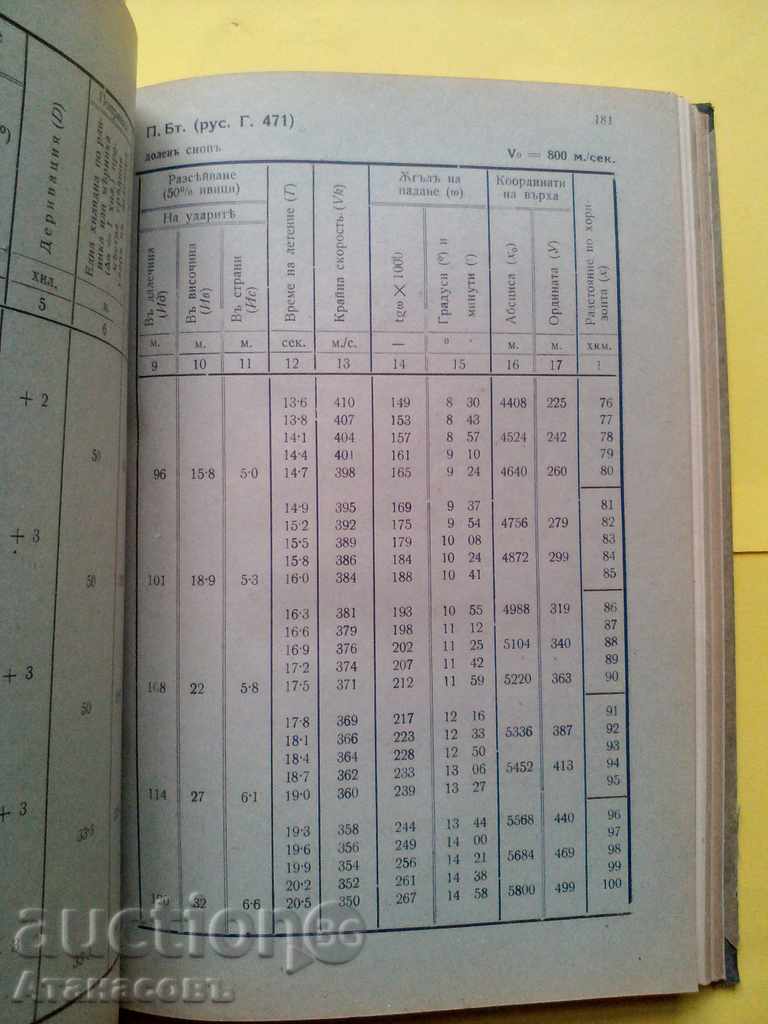 Деривация (D)
хил.
5
6
+ 2
50
+ 3
50
+ 3
50
+ 3
П. Бт. (рус. Г. 471)
181
долень снопъ
V₀ = 800 м./сек.
Разсѣйване (50% ивици)
На ударитѣ
Въ далечина (Hд)
Въ височина (Hв)
Въ страни (Hс)
Време на летение (T)
Крайна скорость (Vк)
Ѫгълъ на падане (ω)
tgω × 1000
Градуси (⁰) и минути (′)
Координати на върха
Абсциса (x₀)
Ордината (У)
Разстояние по хоризонта (x)
м. м. м. сек. м./с. — ⁰ ′ м. м. хкм.
9 10 11 12 13 14 15 16 17 1
13·6 410 149 8 30 4408 225 76
13·8 407 153 8 43 77
14·1 404 157 8 57 4524 242 78
14·4 401 161 9 10 79
96 15·8 5·0 14·7 398 165 9 24 4640 260 80
14·9 395 169 9 37 81
15·2 392 175 9 54 4756 279 82
15·5 389 179 10 08 83
15·8 386 184 10 24 4872 299 84
101 18·9 5·3 16·0 384 188 10 41 85
16·3 381 193 10 55 4988 319 86
16·6 379 198 11 12 87
16·9 376 202 11 25 5104 340 88
17·2 374 207 11 42 89
108 22 5·8 17·5 371 212 11 59 5220 363 90
17·8 369 217 12 16 91
18·1 366 223 12 33 5336 387 92
18·4 364 228 12 50 93
18·7 362 233 13 06 5452 413 94
114 27 6·1 19·0 360 239 13 27 95
19·3 358 244 13 44 5568 440 96
19·6 356 249 14 00 97
19·9 354 256 14 21 5684 469 98
20·2 352 261 14 38 99
120 32 6·6 20·5 350 267 14 58 5800 499 100
auction 86
Атанасовъ